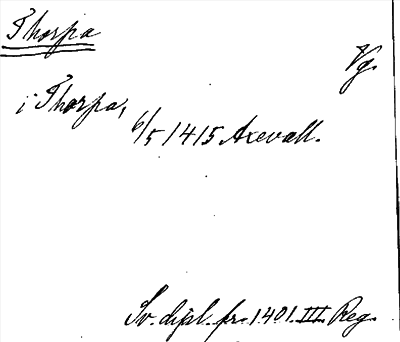 Thorpa
Vg.
i Thorpa, 6/5 1415 Axevall.
Sv. dipl. fr. 1401. III. Reg.